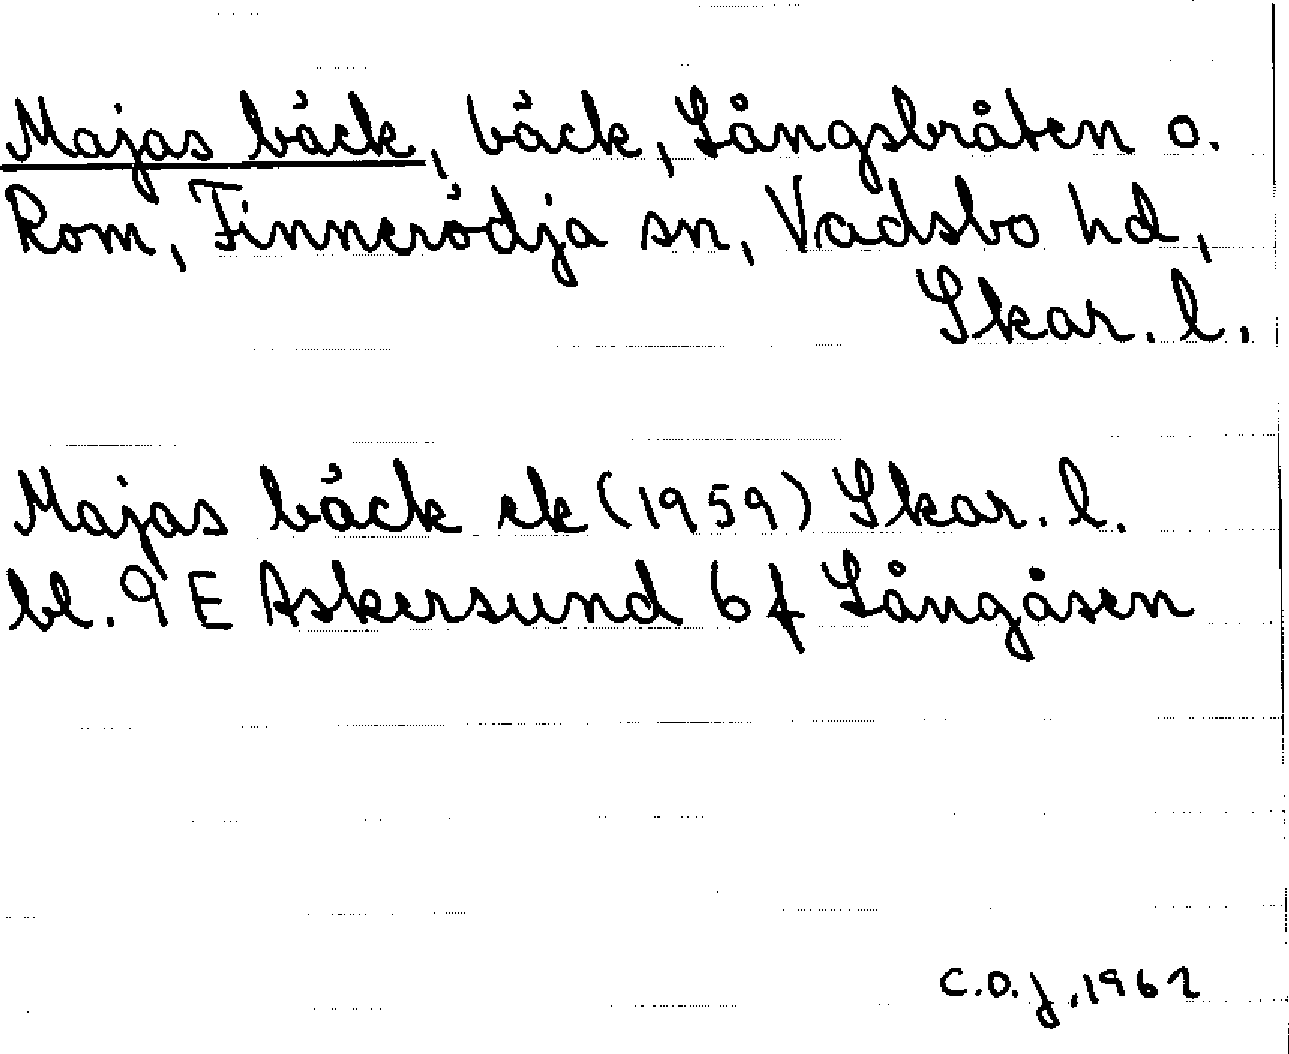 Majas bäck, bäck, Långsbråten o.
Rom, Finnerödja sn, Vadsbo hd,
Skar. l.
Majas bäck ek (1959) Skar. l.
bl. 9 E Askersund 6 f Långåsen
C.O.J., 1962